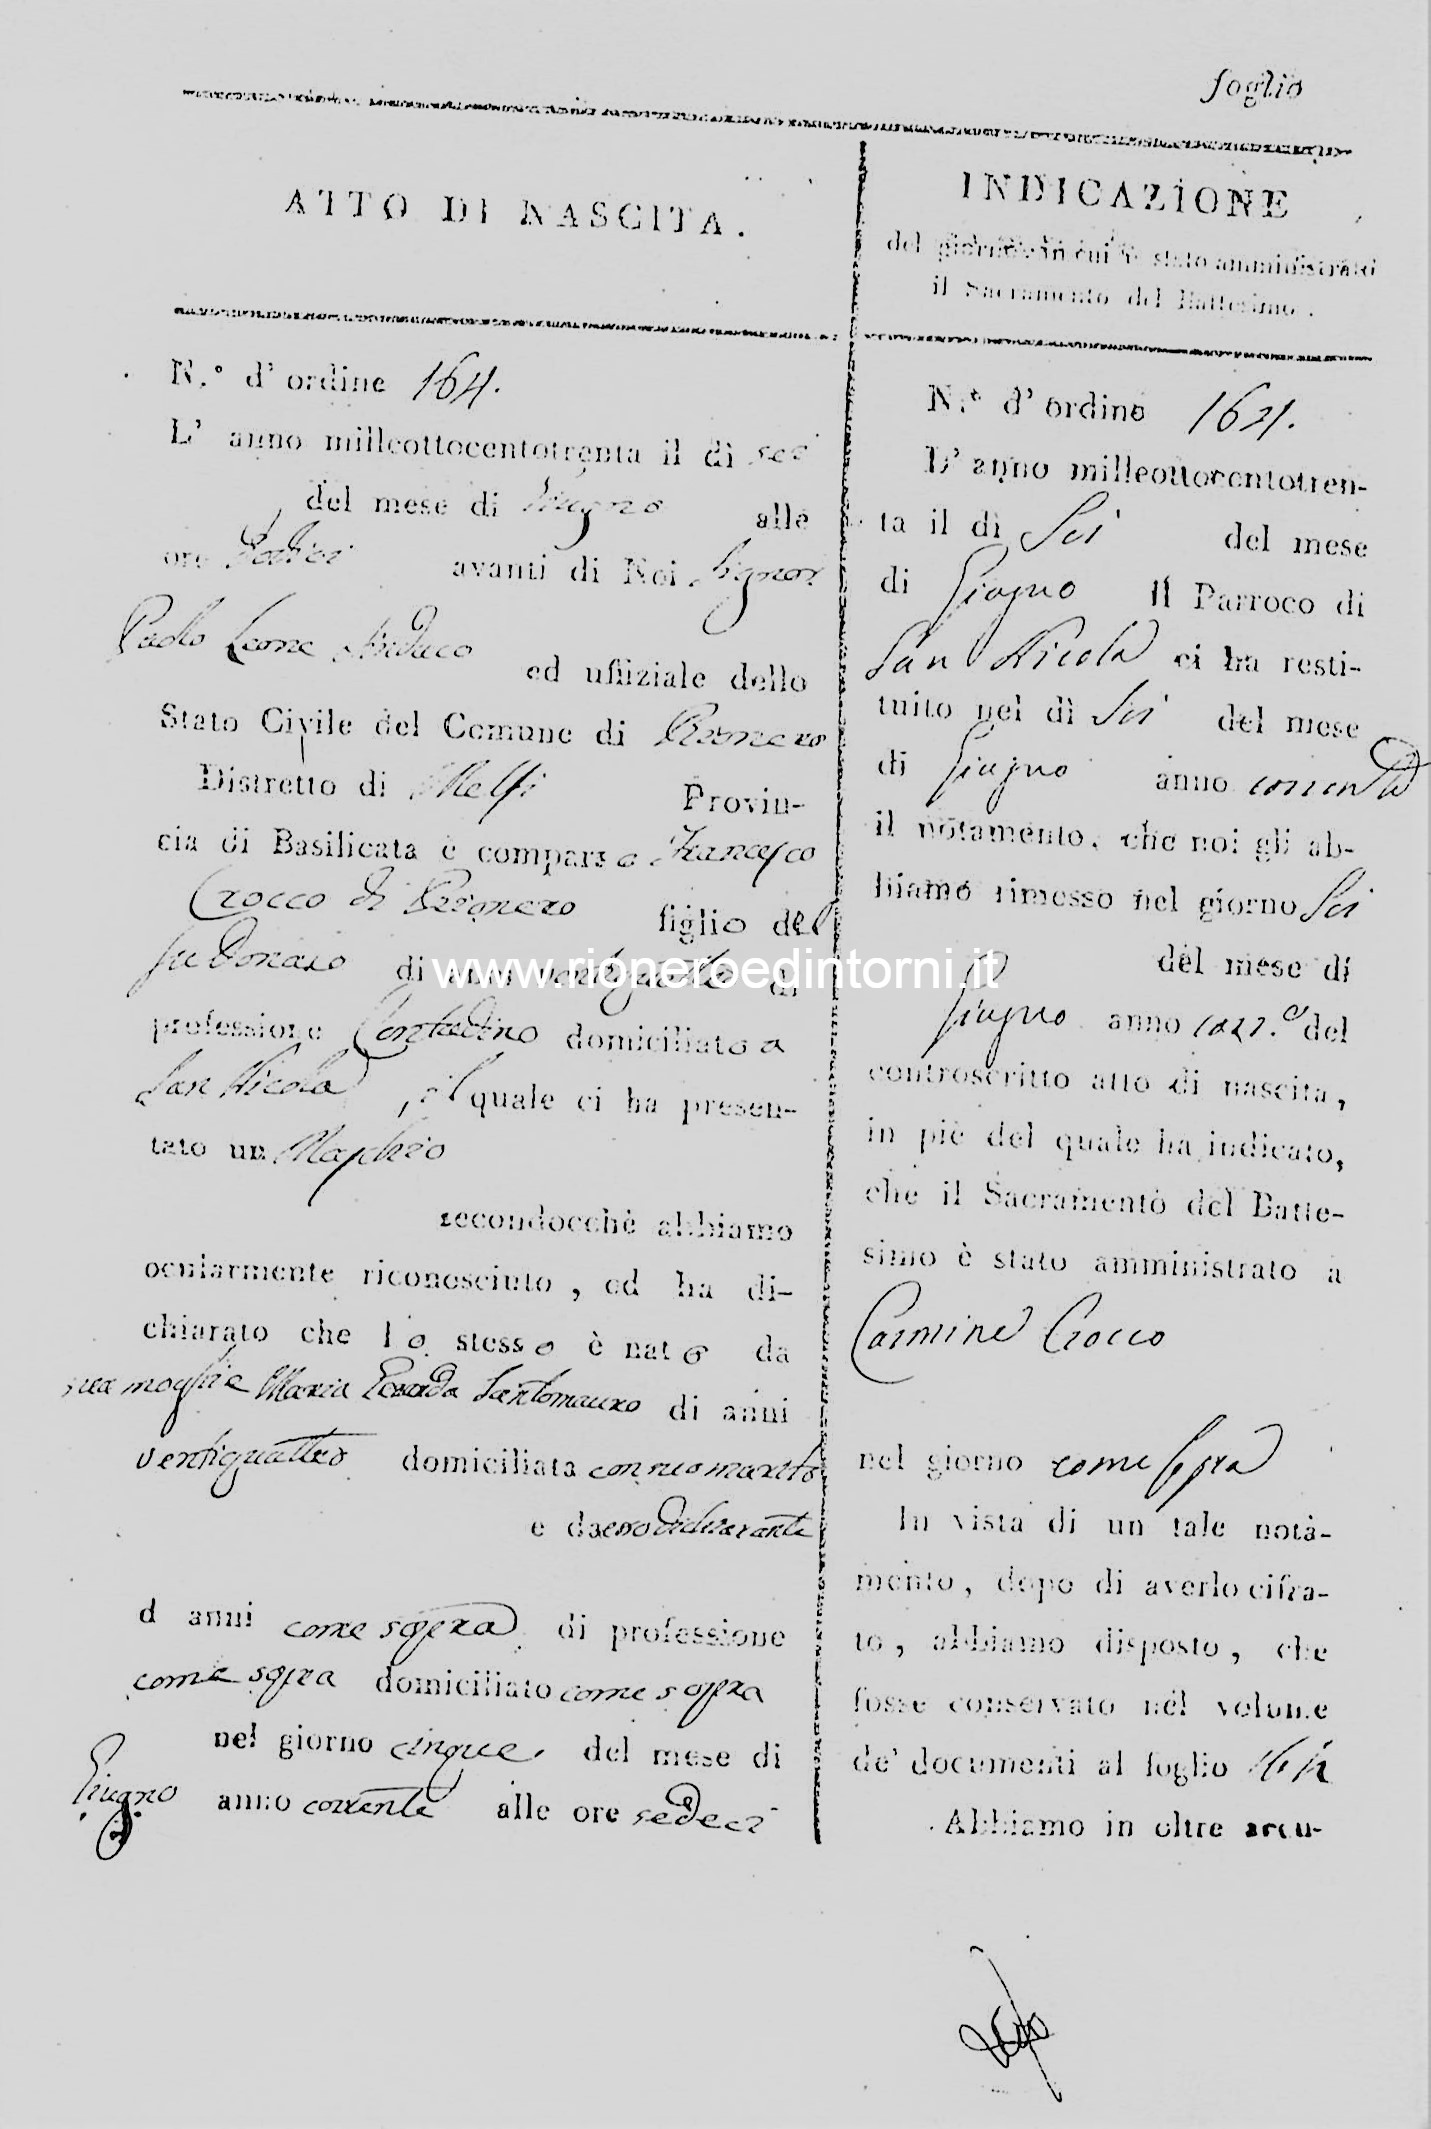 foglio
ATTO DI NASCITA.
N.° d' ordine 164.
L' anno milleottocentotrenta il dì sei
del mese di Giugno alle
ore dodici avanti di Noi Signor
Paolo Leone Sindaco ed uffiziale dello
Stato Civile del Comune di Rionero
Distretto di Melfi Provin-
cia di Basilicata è comparso Francesco
Crocco di Rionero figlio del
fu Donato di anni ventiquattro di
professione Contadino domiciliato a
San Nicola, il quale ci ha presen-
tato un Maschio
secondocchè abbiamo
ocularmente riconosciuto, ed ha di-
chiarato che lo stesso è nato da
sua moglie Maria Santomauro di anni
ventiquattro domiciliata con suo marito
e da esso dichiarante
d anni come sopra di professione
come sopra domiciliato come sopra
nel giorno cinque del mese di
Giugno anno corrente alle ore sedeci
INDICAZIONE
del giorno in cui è stato amministrato
il Sacramento del Battesimo.
N.° d' ordine 164.
L' anno milleottocentotren-
ta il dì Sei del mese
di Giugno Il Parroco di
San Nicola ci ha resti-
tuito nel dì Sei del mese
di Giugno anno corrente
il notamento, che noi gli ab-
biamo rimesso nel giorno Sei
del mese di
Giugno anno del
controscritto atto di nascita,
in piè del quale ha indicato,
che il Sacramento del Batte-
simo è stato amministrato a
Carmine Crocco
nel giorno come sopra
In vista di un tale nota-
mento, dopo di averlo cifra-
to, abbiamo disposto, che
fosse conservato nel volume
de' documenti al foglio 164
Abbiamo in oltre accu-
www.rioneroedintorni.it